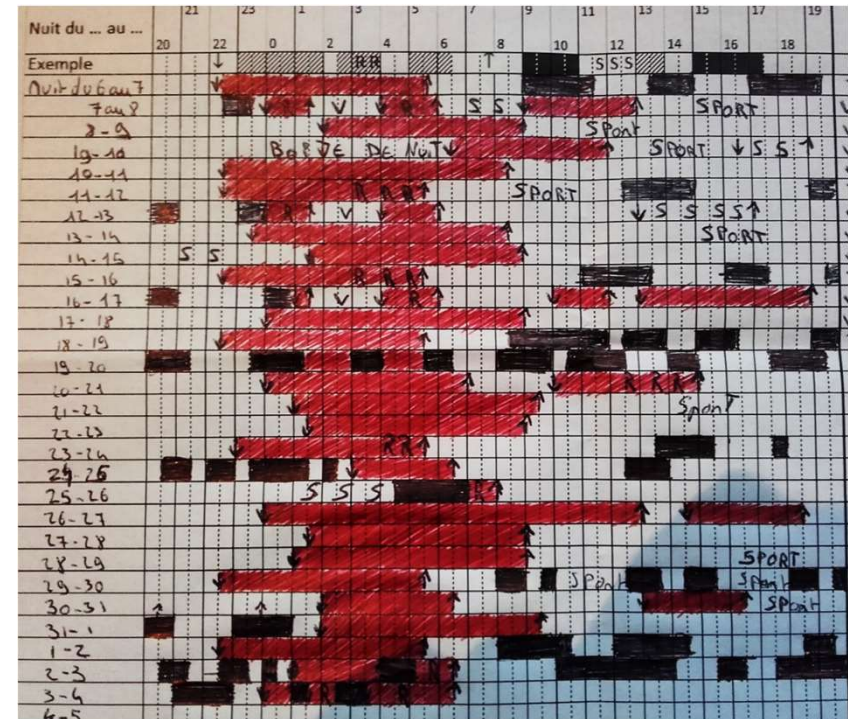 21 23 1 3 5 7 9 11 13 15 17 19
Nuit du ... au ...
20 22 0 2 4 6 8 10 12 14 16 18
Exemple ↓ R R ↑ S S S
Nuit du 6 au 7 ↓ ↑
7 au 8 ↓ R ↑ V ↓ R ↑ S S ↓ ↑ SPORT
8-9 ↓ ↑ Sport
19-10 BORDE DE NUIT ↓ ↑ SPORT ↓ S S ↑
10-11 ↓ ↑
11-12 ↓ R R R ↑ SPORT
12-13 ↓ R ↑ V ↓ ↑ ↓ S S S S ↑
13-14 ↓ ↑ SPORT
14-15 S S ↓ ↑
15-16 ↓ R R R ↑
16-17 ↑ V ↓ R ↑ ↓ ↑ ↓ ↑
17-18 ↓ ↑
18-19 ↓ ↑
19-20
20-21 ↓ ↑ ↓ R R R ↑
21-22 ↓ ↑ Sport
22-23 ↓ ↑
23-24 ↓ R R ↑
24-25 ↓ ↑
25-26 S S S R ↑
26-27 ↓ ↑ ↓ ↑
27-28 ↓ ↑
28-29 ↓ ↑ SPORT
29-30 ↓ ↑ Sport Sport
30-31 ↑ ↑ ↓ ↑ ↓ ↑ Sport
31-1 ↓ ↑
1-2 ↓ ↑
2-3 R R ↑
3-4 ↓ R R ↑
4-5